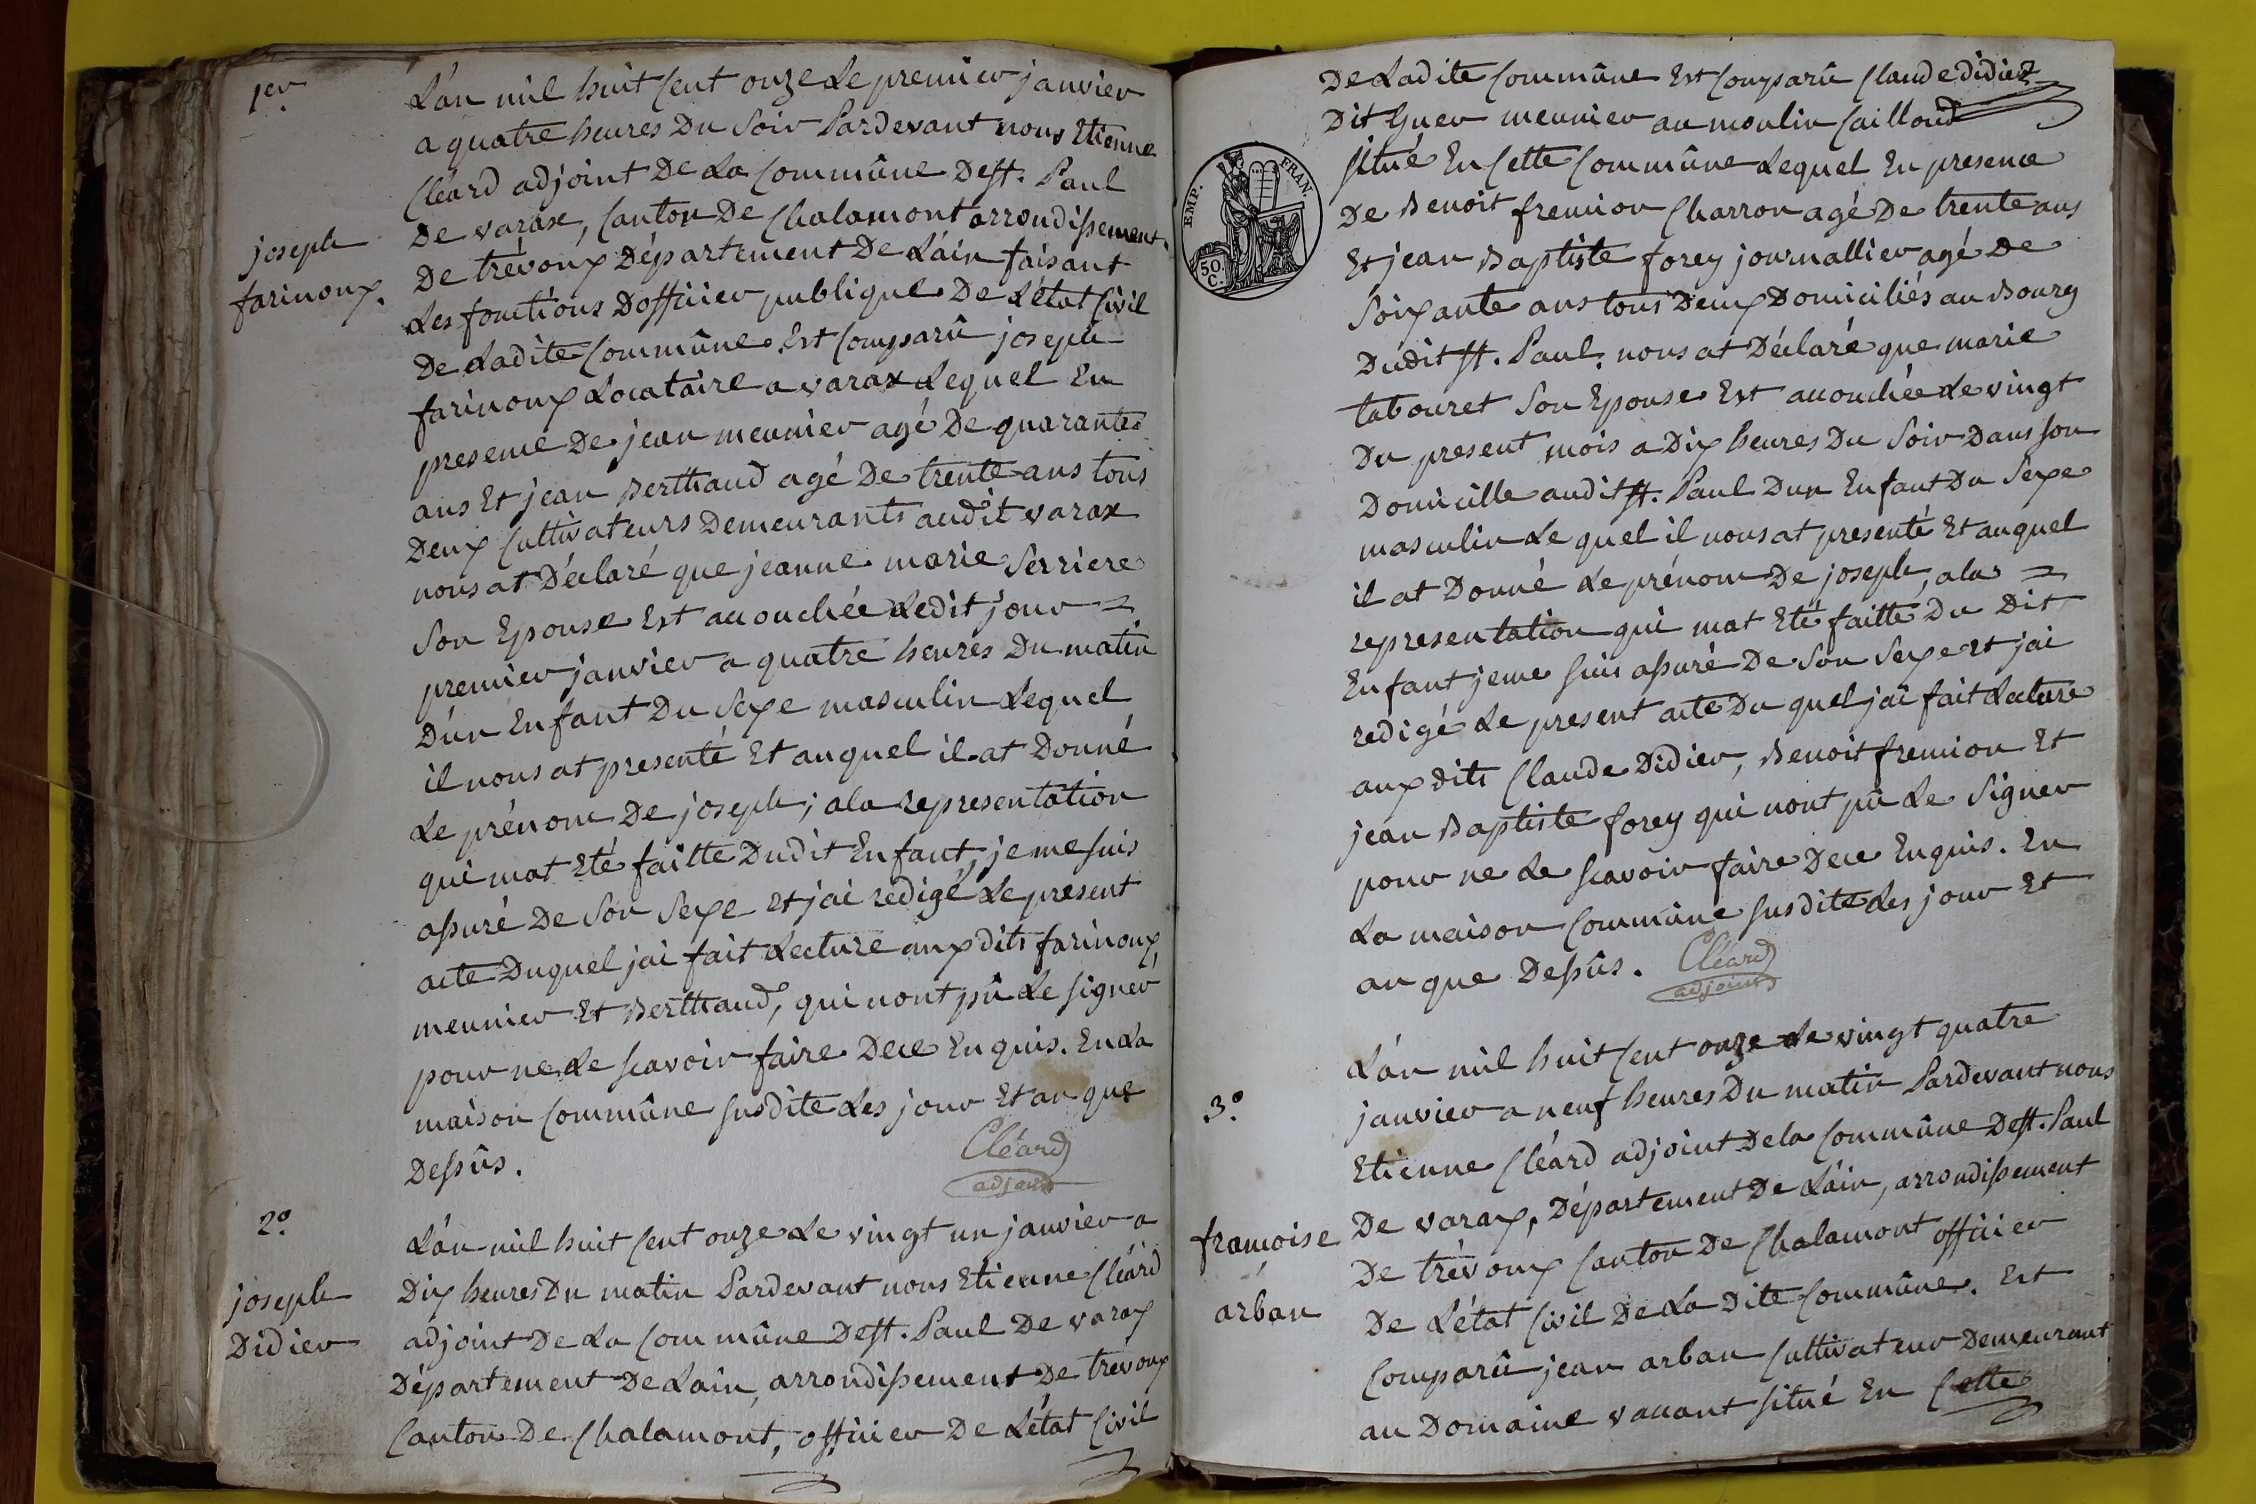 1er.
L'an mil huit Cent onze Le premier janvier
a quatre heures Du Soir Pardevant nous Etienne
Cléard adjoint De La Commûne De st. Paul
De varax, Canton De Chalamont arrondissement
joseph
farinoux.
De trévoux Département De L'ain faisant
Les fonctions D'officier publique De L'état Civil
De Ladite Commûne. Est Comparû joseph
farinoux Locataire a varax Lequel En
presence De jean meunier agé De quarante
ans Et jean Berthaud agé De trente ans tous
Deux Cultivateurs Demeurants audit varax
nous at Déclaré que jeanne marie Serriere
Son Epouse Est accouchée Ledit jour
premier janvier a quatre heures Du matin
D'un Enfant Du Sexe masculin Lequel
il nous at presenté Et auquel il at Donné
Le prénom De joseph; a la representation
qui mat Eté faitte Dudit Enfant, je me suis
assuré De Son Sexe Et jai rédigé Le present
acte Duquel jai fait Lecture aux dits farinoux,
meunier Et Berthaud, qui nont pû Le signer
pour ne Le scavoir faire De ce Enquis. En La
maison Commûne susdite Les jour Et an que
Dessûs.
Cléard
adjoint
2o.
joseph
Didier
L'an mil huit Cent onze Le vingt un janvier a
Dix heures Du matin Pardevant nous Etienne Cléard
adjoint De La Commûne De st. Paul De varax
Département De Lain, arrondissement De trévoux
Canton De Chalamont, officier De L'état Civil
De Ladite Commûne Est Comparû Claude didier
Dit Guer meunier au moulin Cailloud
EMP. FRAN.
50.
C.
situé En Cette Commûne Lequel En presence
De Benoit fremion Charron agé De trente ans
Et jean Baptiste forey journallier agé De
Soixante ans tous Deux Domiciliés au Bourg
Dudit st. Paul. nous at Déclaré que marie
tabouret Son Epouse Est accouchée Le vingt
Du present mois a Dix heures Du Soir Dans son
Domicille audit st. Paul Dun Enfant Du Sexe
masculin Le quel il nous at presenté Et auquel
il at Donné Le prénom De joseph, a la
representation qui mat Eté faitte Du Dit
Enfant je me suis assuré De Son Sexe Et jai
redigé Le present acte Du quel jai fait Lecture
aux dits Claude Didier, Benoit fremion Et
jean Baptiste forey qui nont pû Le Signer
pour ne Le scavoir faire De ce Enquis. En
La maison Commûne susdite Les jour Et
an que Dessûs.
Cléard
adjoint
3o.
francoise
arban
L'an mil huit Cent onze Le vingt quatre
janvier a neuf heures Du matin Pardevant nous
Etienne Cléard adjoint De la Commûne De st. Paul
De varax, Département De L'ain, arrondissement
De trévoux Canton De Chalamont officier
De L'état Civil De La Dite Commûne. Est
Comparû jean arban Cultivateur Demeurant
au Domaine vacant situé En Cette